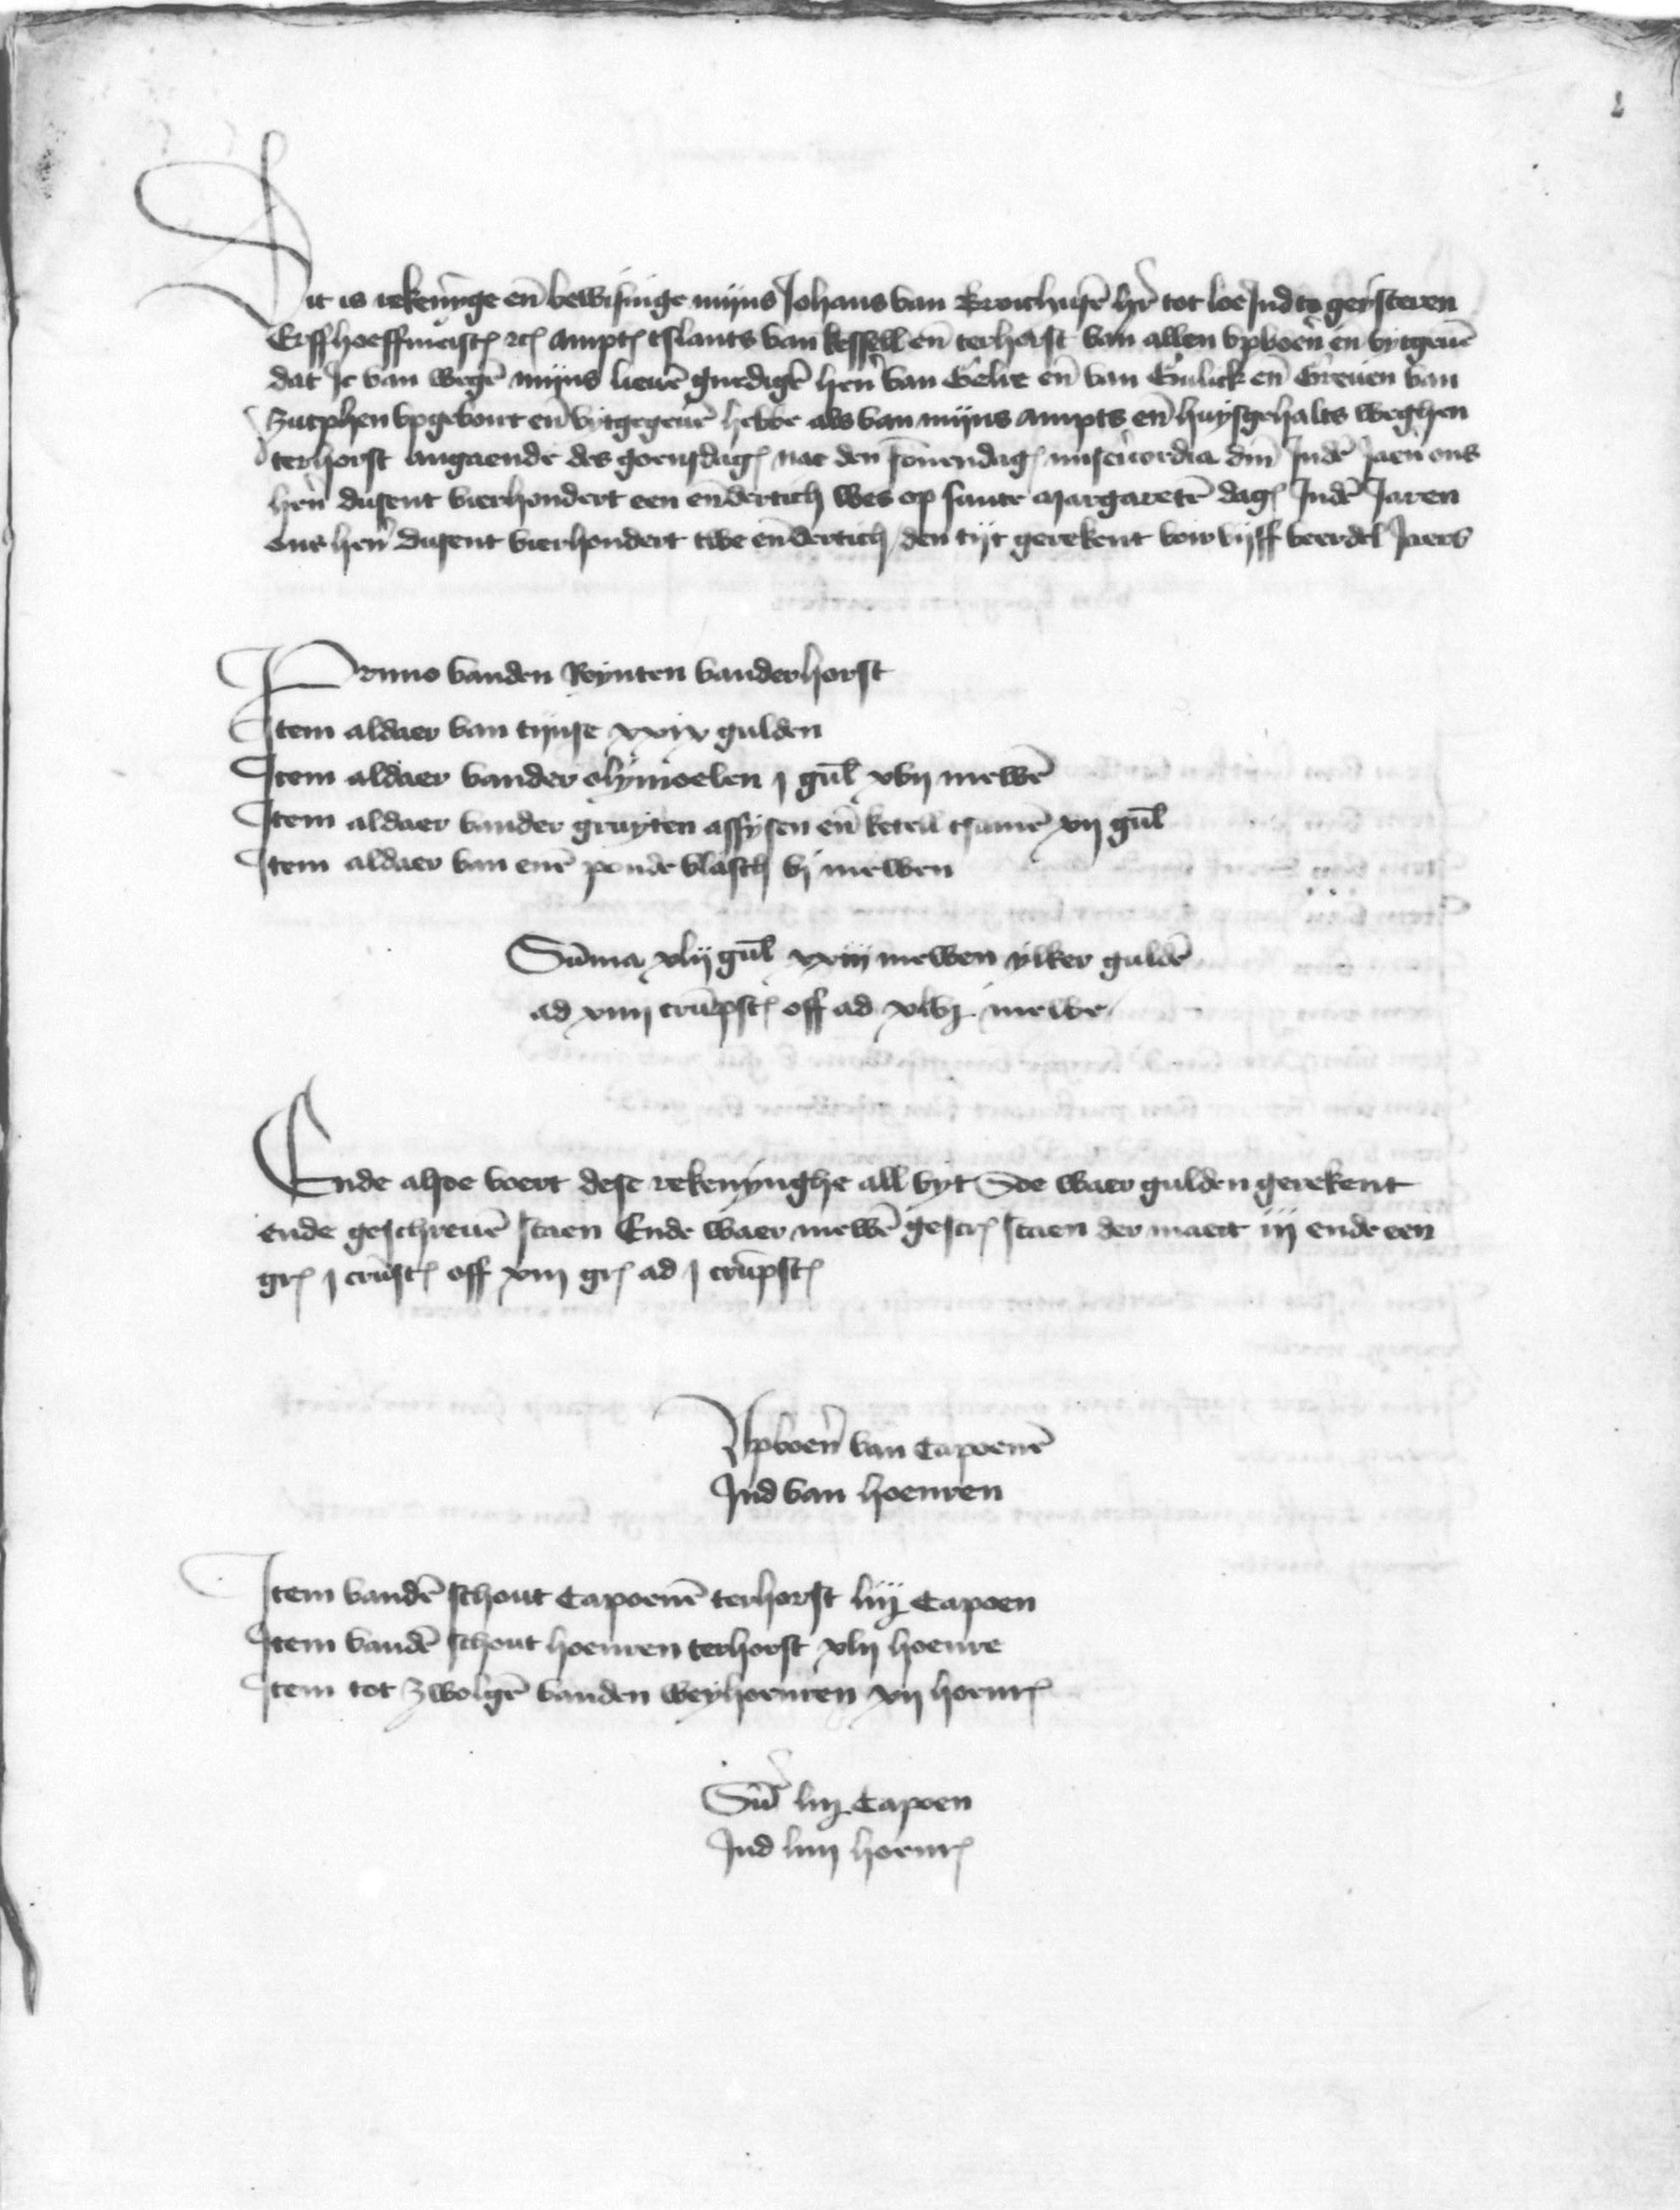 1
Dit is rekenynge en̄ bewisinge mijns Johans van Broichusē h̄r tot loe Ind to geijsteren
Erffhoeffmeist̄ etc̄ ampt̄ tslants van kessell en̄ terhorst van allen vpboeñ en̄ vytgeuē
dat Ic van wegē mijns lieuē gnedigē heñ van Gelre en̄ van Gulick en̄ Greuen van
Zutphen vpgebourt en̄ vytgegeuē hebbe als van mijns ampts en̄ huysgehalts weghen
terhorst angaende des goensdaḡ nae den sōnendaḡ misericordia dn̄i Indē Jaeñ ons
heñ dusent vierhondert een en̄ dertich wes op sunte margaretē daḡ Indē Jaren
ons heñ dusent vierhondert twe en̄ dertich den tijt gerekent voir vijff veerdel Jaers
Primo vanden Reynten vanderhorst
Item aldaer van tijnse xxix gulden
Item aldaer vander olymoelen j gul̄ xvij mewē
Item aldaer vander gruyten assysen en̄ keteil tsamē xij gul̄
Item aldaer van enē ponde vlasch vj mewen
Sūma xlij gul̄ xxiij mewen ylker guldē
ad xiiij crūpst̄ off ad xlvj mewe
Ende alsoe voert dese rekenynghe all vyt Soe waer gulden gerekent
ende geschreuē staen Ende waer mewē gescr̄ staen der maect iij ende een
gr̄ j crūst̄ off xiij gr̄ ad j crūpst̄
Vpboeñ van Capoenē
Ind van hoenren
Item vandē schout Capoenē terhorst liij Capoen
Item vandē schout hoenren terhorst xlij hoenre
Item tot Zwolgē vanden weyhoenren xij hoenr̄
Sūm̄ liij Capoen
Ind liiij hoenr̄